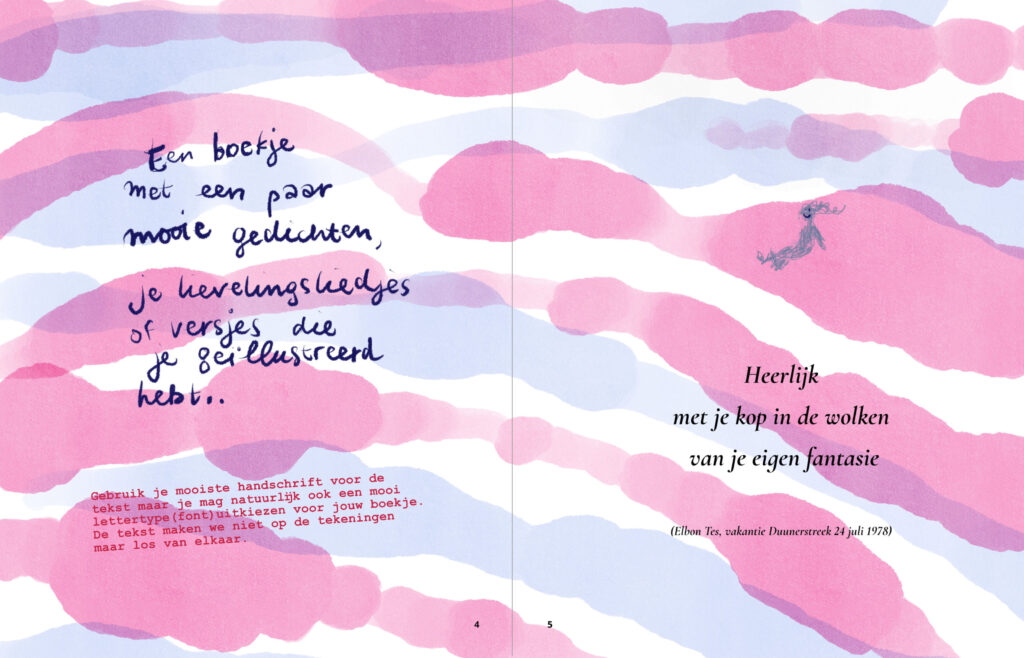 Een boekje
met een paar
mooie gedichten,
je lievelingsliedjes
of versjes die
je geïllustreerd
hebt..
Gebruik je mooiste handschrift voor de
tekst maar je mag natuurlijk ook een mooi
lettertype(font)uitkiezen voor jouw boekje.
De tekst maken we niet op de tekeningen
maar los van elkaar.
4
Heerlijk
met je kop in de wolken
van je eigen fantasie
(Elbon Tes, vakantie Duunerstreek 24 juli 1978)
5